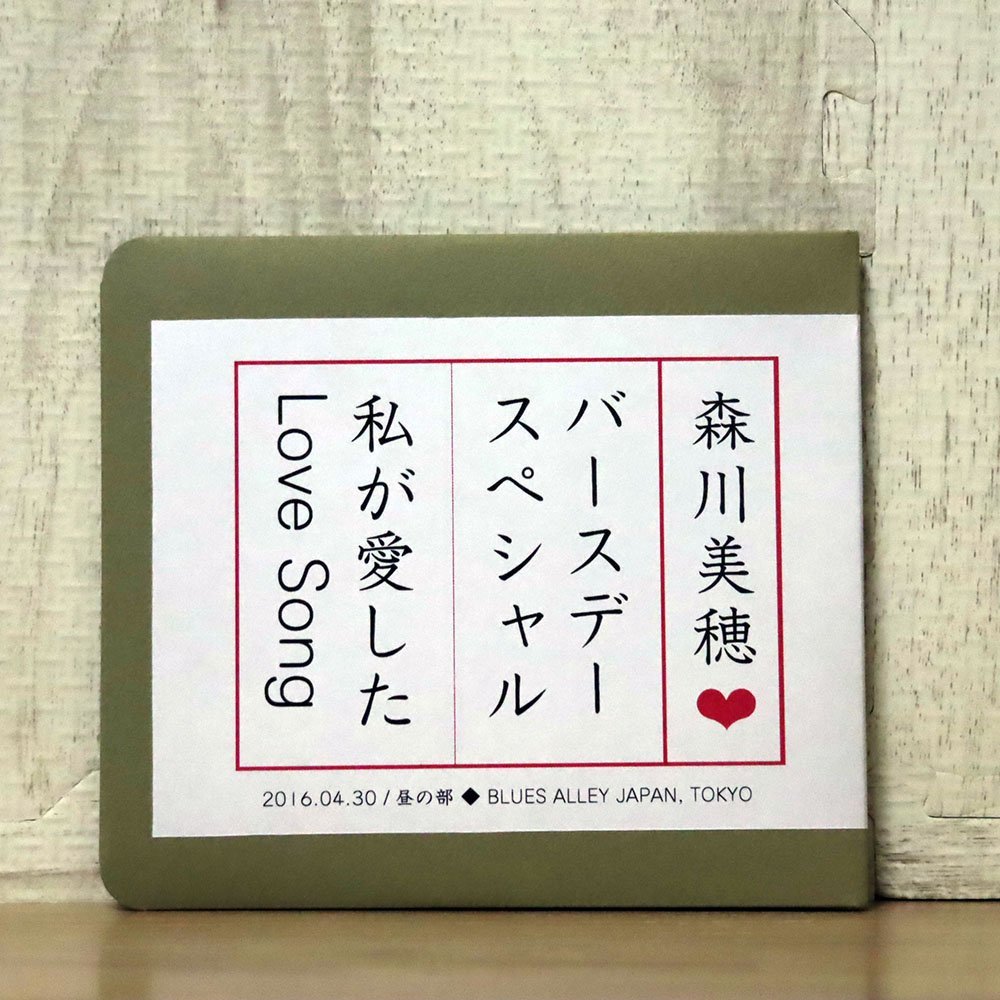 森川美穂♥
バースデー
スペシャル
私が愛した
Love Song
2016.04.30 / 昼の部 ◆ BLUES ALLEY JAPAN, TOKYO